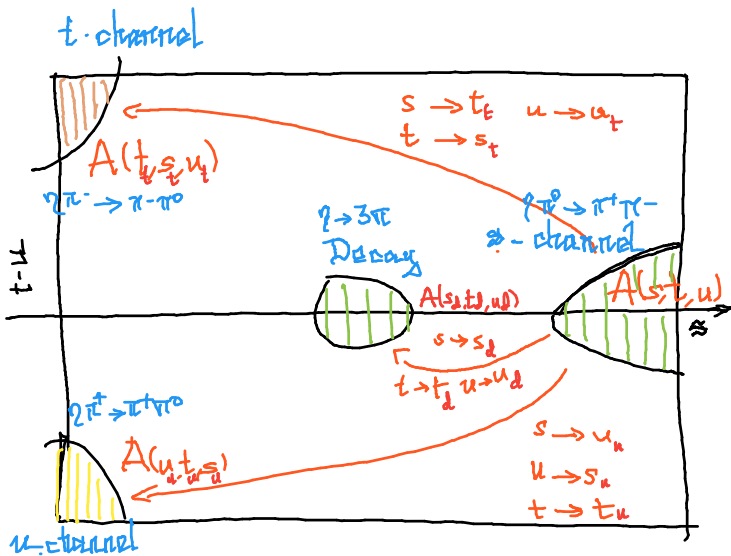 t-channel
s → t_t u → u_t
t → s_t
A(t_t, s_t, u_t)
ηπ⁻ → π⁻π⁰
η → 3π
Decay
ηπ⁰ → π⁺π⁻
s - channel
t-u
A(s_d, t_d, u_d)
A(s, t, u)
s
s → s_d
t → t_d u → u_d
ηπ⁺ → π⁺π⁰
A(u_u, t_u, s_u)
s → u_u
u → s_u
t → t_u
u-channel